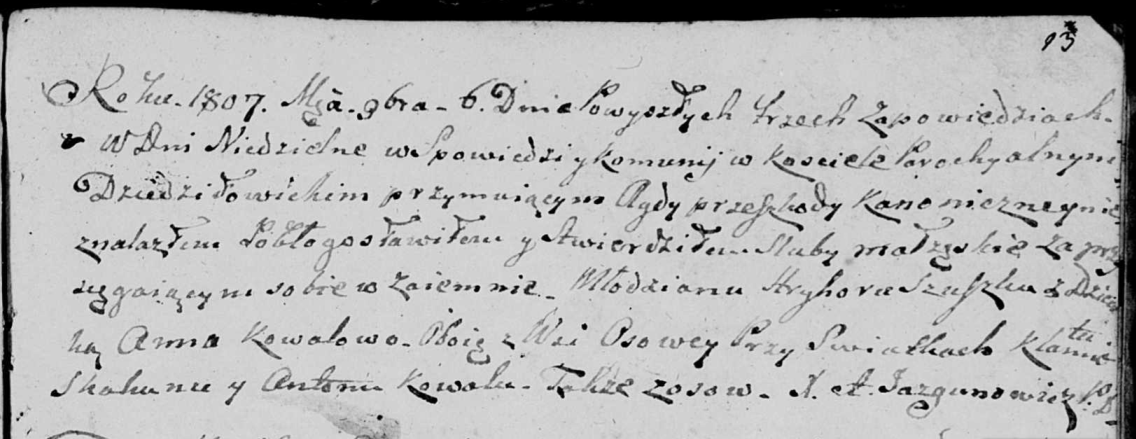 93
Roku. 1807. Mca. 9bra. 6. Dnia Powyszłych trzech Zapowiedziach.
W Dni Niedzielne w Spowiedzi y komunij w kosciele Parochyalnym
Dziedziłowickim przymuiącym Agdy przeszkody kanoniczney nie
znalazłem Pobłogosławiłem y stwierdziłem Sluby małzęskie za przy
sięgaiącym sobie w zaiemnie. Młodziana Hryhora Szuszku z Dziew
ką Anna Kowalowo. Oboię z Wsi Osowey Przy Swiatkach
Skakunu y Antonu Kowalu. Także zosow. X. A. Jazgunowicz